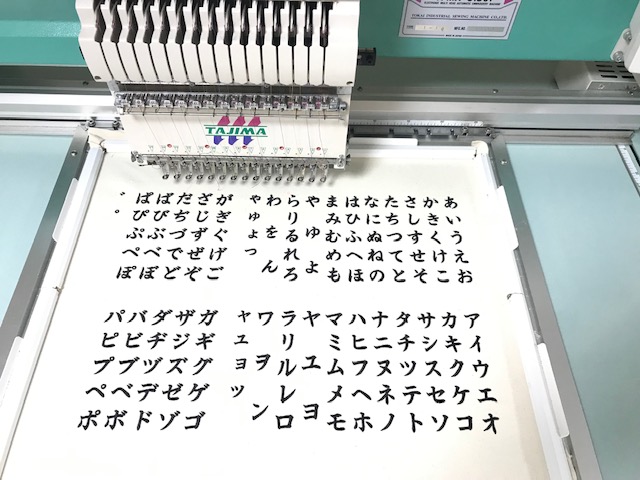 TOKAI INDUSTRIAL SEWING MACHINE CO.,LTD.
TAJIMA
あいうえお
かきくけこ
さしすせそ
たちつてと
なにぬねの
はひふへほ
まみむめも
やゆよ
らりるれろ
わをん
ゃゅょっ
がぎぐげご
ざじずぜぞ
だぢづでど
ばびぶべぼ
ぱぴぷぺぽ
゛゜
アイウエオ
カキクケコ
サシスセソ
タチツテト
ナニヌネノ
ハヒフヘホ
マミムメモ
ヤユヨ
ラリルレロ
ワヲン
ャュョッ
ガギグゲゴ
ザジズゼゾ
ダヂヅデド
バビブベボ
パピプペポ